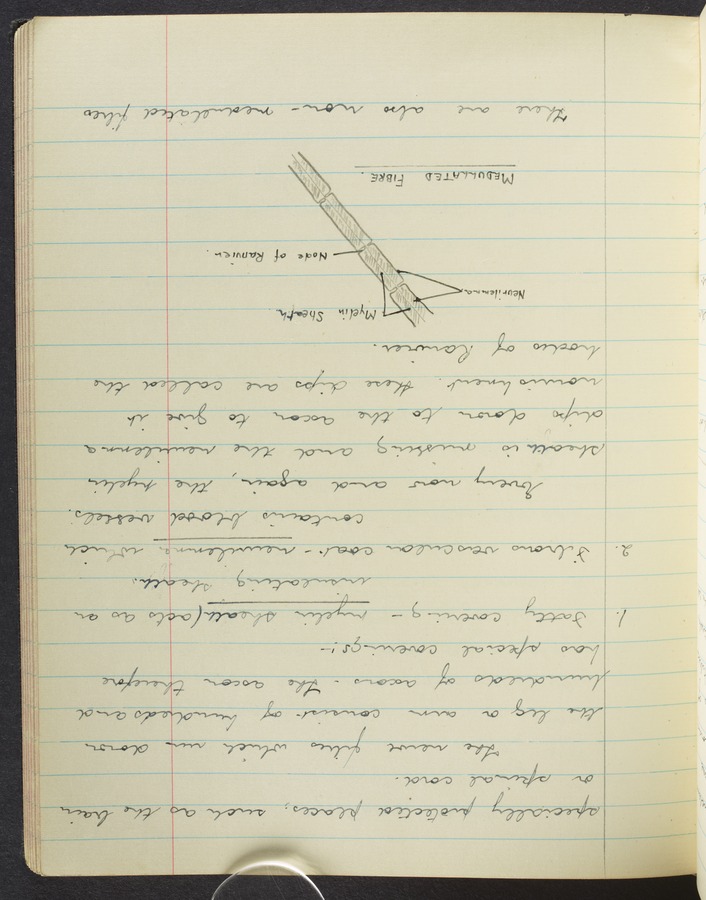 specially protected places, such as the brain
or spinal cord.
The nerve fibres which run down
the leg or arm consist of hundreds and
hundreds of axons. The axon therefore
has special coverings:-
1. Fatty covering - myelin sheath (acts as an
insulating sheath.
2. Fibrous vascular coat - neurilemma which
contains blood vessels.
Every now and again, the myelin
sheath is missing and the neurilemma
dips down to the axon to give it
nourishment. These dips are called the
nodes of Ranvier.
Myelin Sheath.
Neurilemma
Node of Ranvier.
MEDULLATED FIBRE.
There are also non-medullated fibres